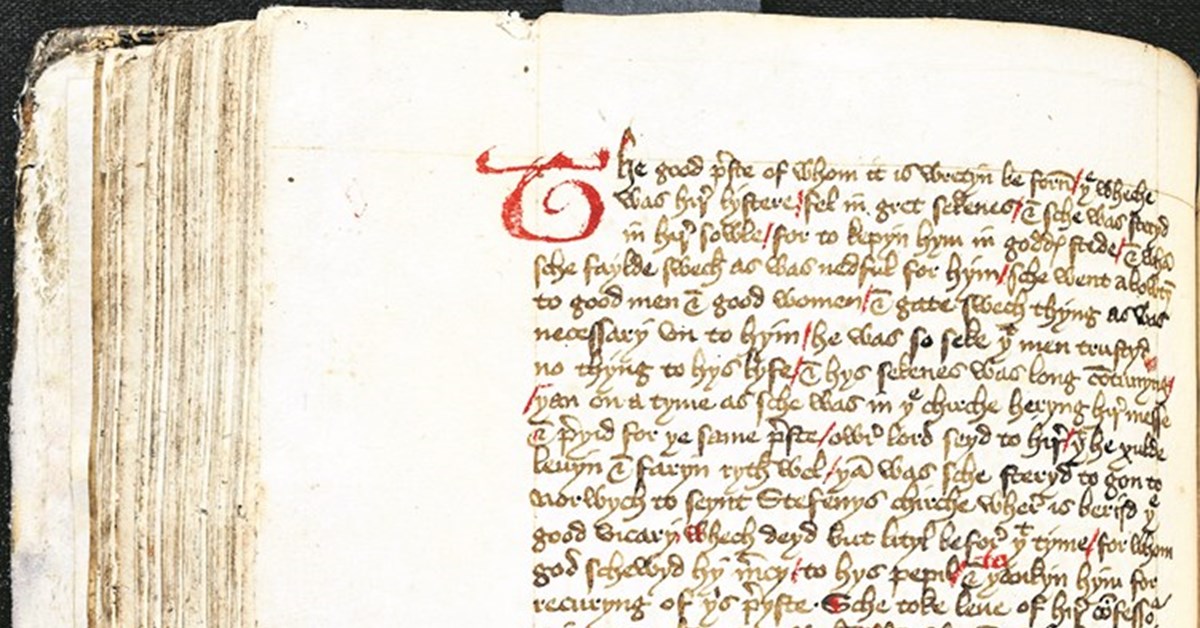 The good pꝛ̄ste of whom it is wretyn be forn̄ / yͤ wheche
was hir̛ lystere / fel in gret sekenes / & sche was steryd
in hir̛ sowle / for to kepyn hym in goddꝭ stede / &
sche faylde swech as was nedful for hym / sche went abowtyn̄
to good men & good women / & gate swech thyng as was
necessary vn to hym / he was so seke yͭ men trustyd
no thyng to hys lyfe / & hys sekenes was long cōtunyng /
/ yan on a tyme as sche was in yͤ chirche heryng hir̛ messe
& p̄yid for ye same p̄ste / owr̛ lord seyd to hir̛ / yͭ he xulde
leuyn & faryn ryth wel / yā was sche steryd to gon to
Norwych to seynt Stefenys chirche wher̛ is berijd yͤ
good vicary whech deyd but lityl befor̛ yͭ tyme / for whom
god schewyd hy m̄cy / to hys pepil / & to yankyn hym for
recuryng of yͥs p̄yste. Sche toke leue of hir̛ cōfesso